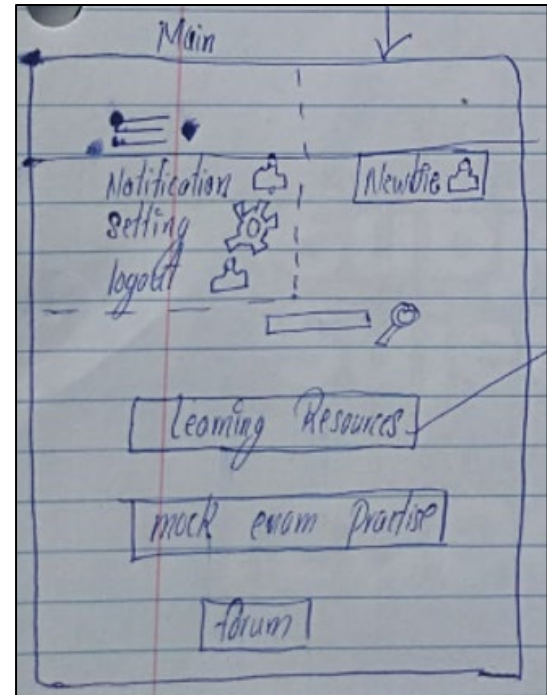 Main
Notification
Newbie
Setting
logout
Learning Resources
mock exam Practise
forum